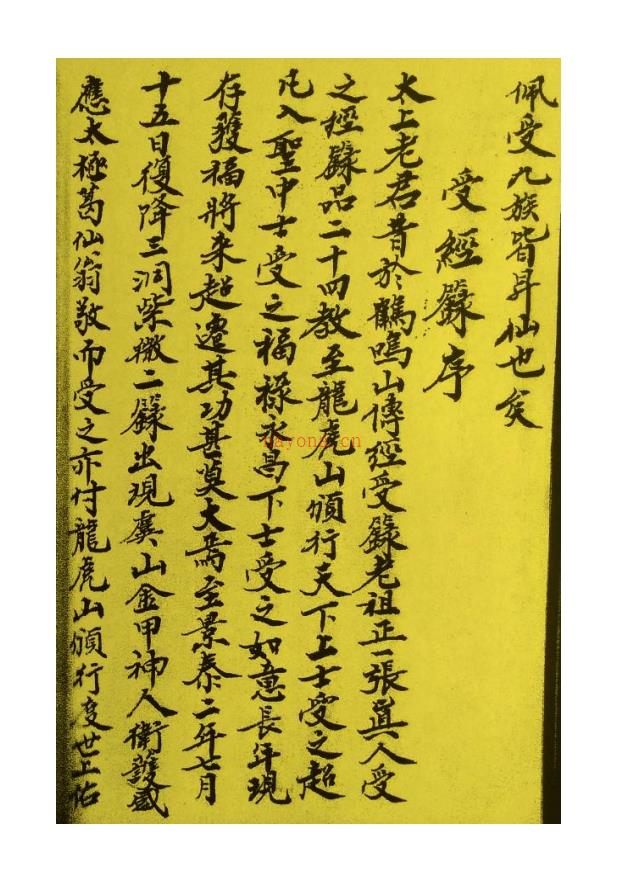 佩受九族皆昇仙也矣
受經籙序
太上老君昔於鶴鳴山傳經受籙老祖正一張眞人受
之經籙品二十四教至龍虎山頒行天下上士受之超
凡入聖中士受之福祿永昌下士受之如意長年現
存獲福將来超遷其功甚莫大焉至景泰二年七月
十五日復降三洞紫微二籙出現虞山金甲神人衛護感
應太極葛仙翁敬而受之亦付龍虎山頒行度世上佑